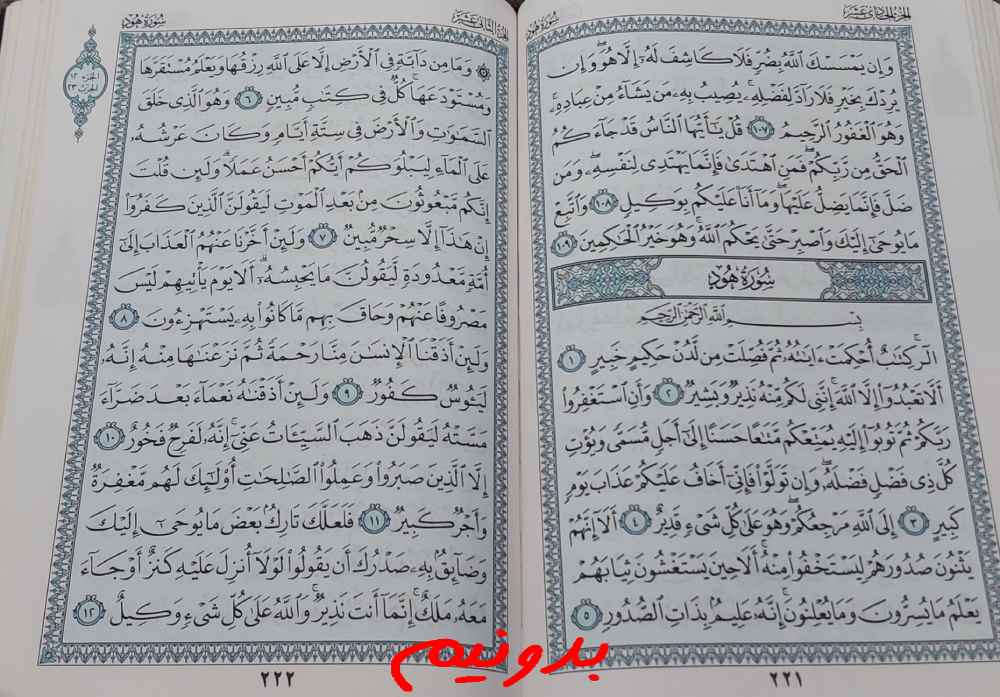 الجزء الحادي عشر
سورة هود
وَإِن يَمْسَسْكَ ٱللَّهُ بِضُرٍّ فَلَا كَاشِفَ لَهُۥٓ إِلَّا هُوَۖ وَإِن
يُرِدْكَ بِخَيْرٍ فَلَا رَآدَّ لِفَضْلِهِۦۚ يُصِيبُ بِهِۦ مَن يَشَآءُ مِنْ عِبَادِهِۦۚ
وَهُوَ ٱلْغَفُورُ ٱلرَّحِيمُ ١٠٧ قُلْ يَٰٓأَيُّهَا ٱلنَّاسُ قَدْ جَآءَكُمُ
ٱلْحَقُّ مِن رَّبِّكُمْۖ فَمَنِ ٱهْتَدَىٰ فَإِنَّمَا يَهْتَدِى لِنَفْسِهِۦۖ وَمَن
ضَلَّ فَإِنَّمَا يَضِلُّ عَلَيْهَاۖ وَمَآ أَنَا۠ عَلَيْكُم بِوَكِيلٍ ١٠٨ وَٱتَّبِعْ
مَا يُوحَىٰٓ إِلَيْكَ وَٱصْبِرْ حَتَّىٰ يَحْكُمَ ٱللَّهُۚ وَهُوَ خَيْرُ ٱلْحَٰكِمِينَ ١٠٩
سُورَةُ هُودٍ
بِسْمِ ٱللَّهِ ٱلرَّحْمَٰنِ ٱلرَّحِيمِ
الٓرۚ كِتَٰبٌ أُحْكِمَتْ ءَايَٰتُهُۥ ثُمَّ فُصِّلَتْ مِن لَّدُنْ حَكِيمٍ خَبِيرٍ ١
أَلَّا تَعْبُدُوٓا۟ إِلَّا ٱللَّهَۚ إِنَّنِى لَكُم مِّنْهُ نَذِيرٌ وَبَشِيرٌ ٢ وَأَنِ ٱسْتَغْفِرُوا۟
رَبَّكُمْ ثُمَّ تُوبُوٓا۟ إِلَيْهِ يُمَتِّعْكُم مَّتَٰعًا حَسَنًا إِلَىٰٓ أَجَلٍ مُّسَمًّى وَيُؤْتِ
كُلَّ ذِى فَضْلٍ فَضْلَهُۥۖ وَإِن تَوَلَّوْا۟ فَإِنِّىٓ أَخَافُ عَلَيْكُمْ عَذَابَ يَوْمٍ
كَبِيرٍ ٣ إِلَى ٱللَّهِ مَرْجِعُكُمْۖ وَهُوَ عَلَىٰ كُلِّ شَىْءٍ قَدِيرٌ ٤ أَلَآ إِنَّهُمْ
يَثْنُونَ صُدُورَهُمْ لِيَسْتَخْفُوا۟ مِنْهُۚ أَلَا حِينَ يَسْتَغْشُونَ ثِيَابَهُمْ
يَعْلَمُ مَا يُسِرُّونَ وَمَا يُعْلِنُونَۚ إِنَّهُۥ عَلِيمٌۢ بِذَاتِ ٱلصُّدُورِ ٥
٢٢١
الجزء الثاني عشر
سورة هود
۞ وَمَا مِن دَآبَّةٍ فِى ٱلْأَرْضِ إِلَّا عَلَى ٱللَّهِ رِزْقُهَا وَيَعْلَمُ مُسْتَقَرَّهَا
وَمُسْتَوْدَعَهَاۚ كُلٌّ فِى كِتَٰبٍ مُّبِينٍ ٦ وَهُوَ ٱلَّذِى خَلَقَ
ٱلسَّمَٰوَٰتِ وَٱلْأَرْضَ فِى سِتَّةِ أَيَّامٍ وَكَانَ عَرْشُهُۥ
عَلَى ٱلْمَآءِ لِيَبْلُوَكُمْ أَيُّكُمْ أَحْسَنُ عَمَلًاۗ وَلَئِن قُلْتَ
إِنَّكُم مَّبْعُوثُونَ مِنۢ بَعْدِ ٱلْمَوْتِ لَيَقُولَنَّ ٱلَّذِينَ كَفَرُوٓا۟
إِنْ هَٰذَآ إِلَّا سِحْرٌ مُّبِينٌ ٧ وَلَئِنْ أَخَّرْنَا عَنْهُمُ ٱلْعَذَابَ إِلَىٰٓ
أُمَّةٍ مَّعْدُودَةٍ لَّيَقُولُنَّ مَا يَحْبِسُهُۥٓۗ أَلَا يَوْمَ يَأْتِيهِمْ لَيْسَ
مَصْرُوفًا عَنْهُمْ وَحَاقَ بِهِم مَّا كَانُوا۟ بِهِۦ يَسْتَهْزِءُونَ ٨
وَلَئِنْ أَذَقْنَا ٱلْإِنسَٰنَ مِنَّا رَحْمَةً ثُمَّ نَزَعْنَٰهَا مِنْهُ إِنَّهُۥ
لَيَـُٔوسٌ كَفُورٌ ٩ وَلَئِنْ أَذَقْنَٰهُ نَعْمَآءَ بَعْدَ ضَرَّآءَ
مَسَّتْهُ لَيَقُولَنَّ ذَهَبَ ٱلسَّيِّـَٔاتُ عَنِّىٓۚ إِنَّهُۥ لَفَرِحٌ فَخُورٌ ١٠
إِلَّا ٱلَّذِينَ صَبَرُوا۟ وَعَمِلُوا۟ ٱلصَّٰلِحَٰتِ أُو۟لَٰٓئِكَ لَهُم مَّغْفِرَةٌ
وَأَجْرٌ كَبِيرٌ ١١ فَلَعَلَّكَ تَارِكٌۢ بَعْضَ مَا يُوحَىٰٓ إِلَيْكَ
وَضَآئِقٌۢ بِهِۦ صَدْرُكَ أَن يَقُولُوا۟ لَوْلَآ أُنزِلَ عَلَيْهِ كَنزٌ أَوْ جَآءَ
مَعَهُۥ مَلَكٌۚ إِنَّمَآ أَنتَ نَذِيرٌۚ وَٱللَّهُ عَلَىٰ كُلِّ شَىْءٍ وَكِيلٌ ١٢
٢٢٢
بدونیم